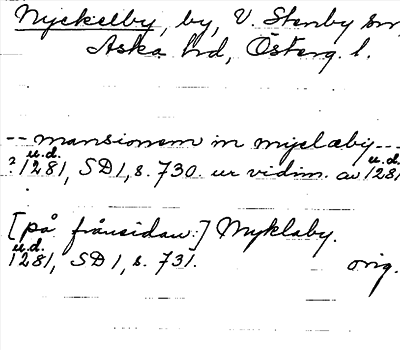 Nyckelby, by, V. Stenby sn,
Aska hd, Österg. l.
-- mansionem in myclæby ---
u.d. u.d.
? 1281, SD 1, s. 730. ur vidim. av 1281
[på frånsidan:] Myklaby.
u.d.
1281, SD 1, s. 731. orig.